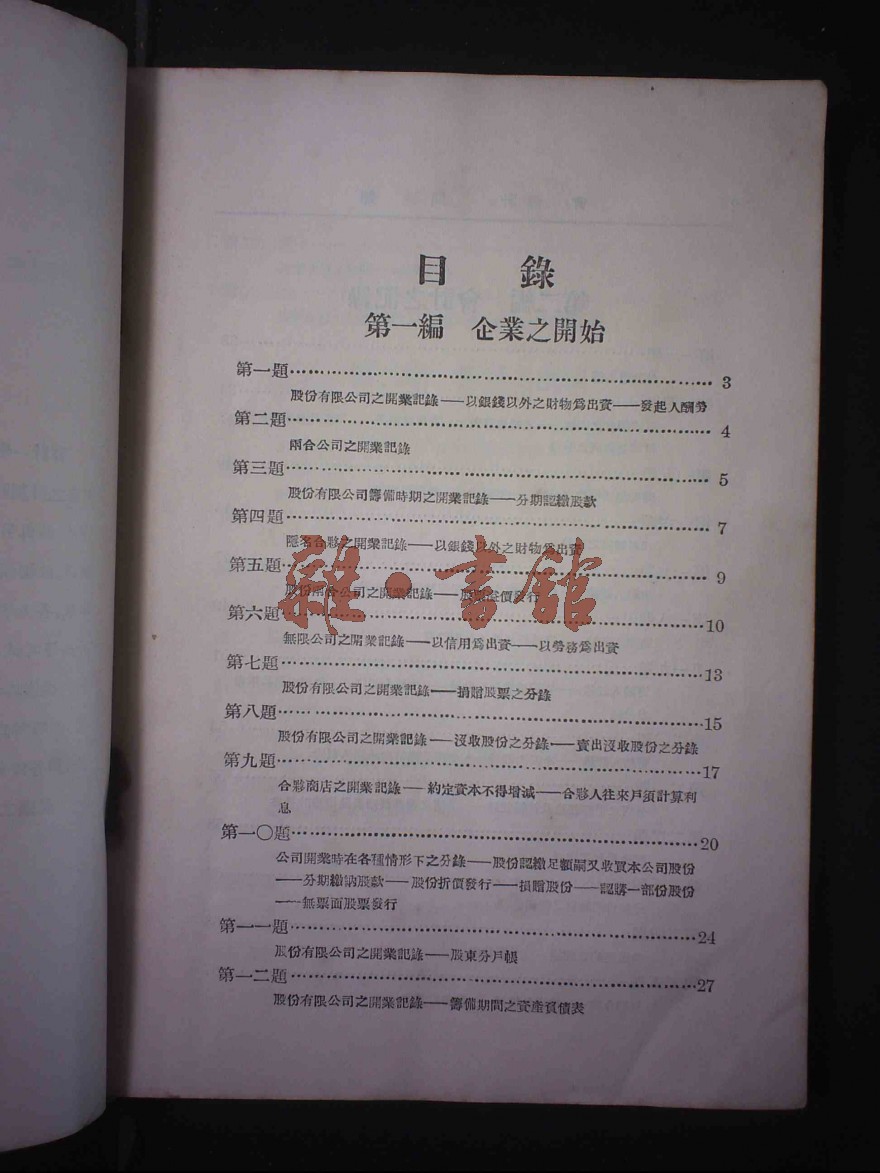 目 錄
第一編 企業之開始
第一題…………………………………………………… 3
股份有限公司之開業記錄——以銀錢以外之財物爲出資——發起人酬勞
第二題…………………………………………………… 4
兩合公司之開業記錄
第三題…………………………………………………… 5
股份有限公司籌備時期之開業記錄——分期認繳股款
第四題…………………………………………………… 7
隱名合夥之開業記錄——以銀錢以外之財物爲出資
第五題…………………………………………………… 9
股份兩合公司之開業記錄——股票溢價發行
雜·書館
第六題……………………………………………………10
無限公司之開業記錄——以信用爲出資——以勞務爲出資
第七題……………………………………………………13
股份有限公司之開業記錄——捐贈股票之分錄
第八題……………………………………………………15
股份有限公司之開業記錄——沒收股份之分錄——賣出沒收股份之分錄
第九題……………………………………………………17
合夥商店之開業記錄——約定資本不得增減——合夥人往來戶須計算利
息
第一〇題…………………………………………………20
公司開業時在各種情形下之分錄——股份認繳足額嗣又收買本公司股份
——分期繳納股款——股份折價發行——捐贈股份——認購一部份股份
——無票面股票發行
第一一題…………………………………………………24
股份有限公司之開業記錄——股東分戶帳
第一二題…………………………………………………27
股份有限公司之開業記錄——籌備期間之資產負債表